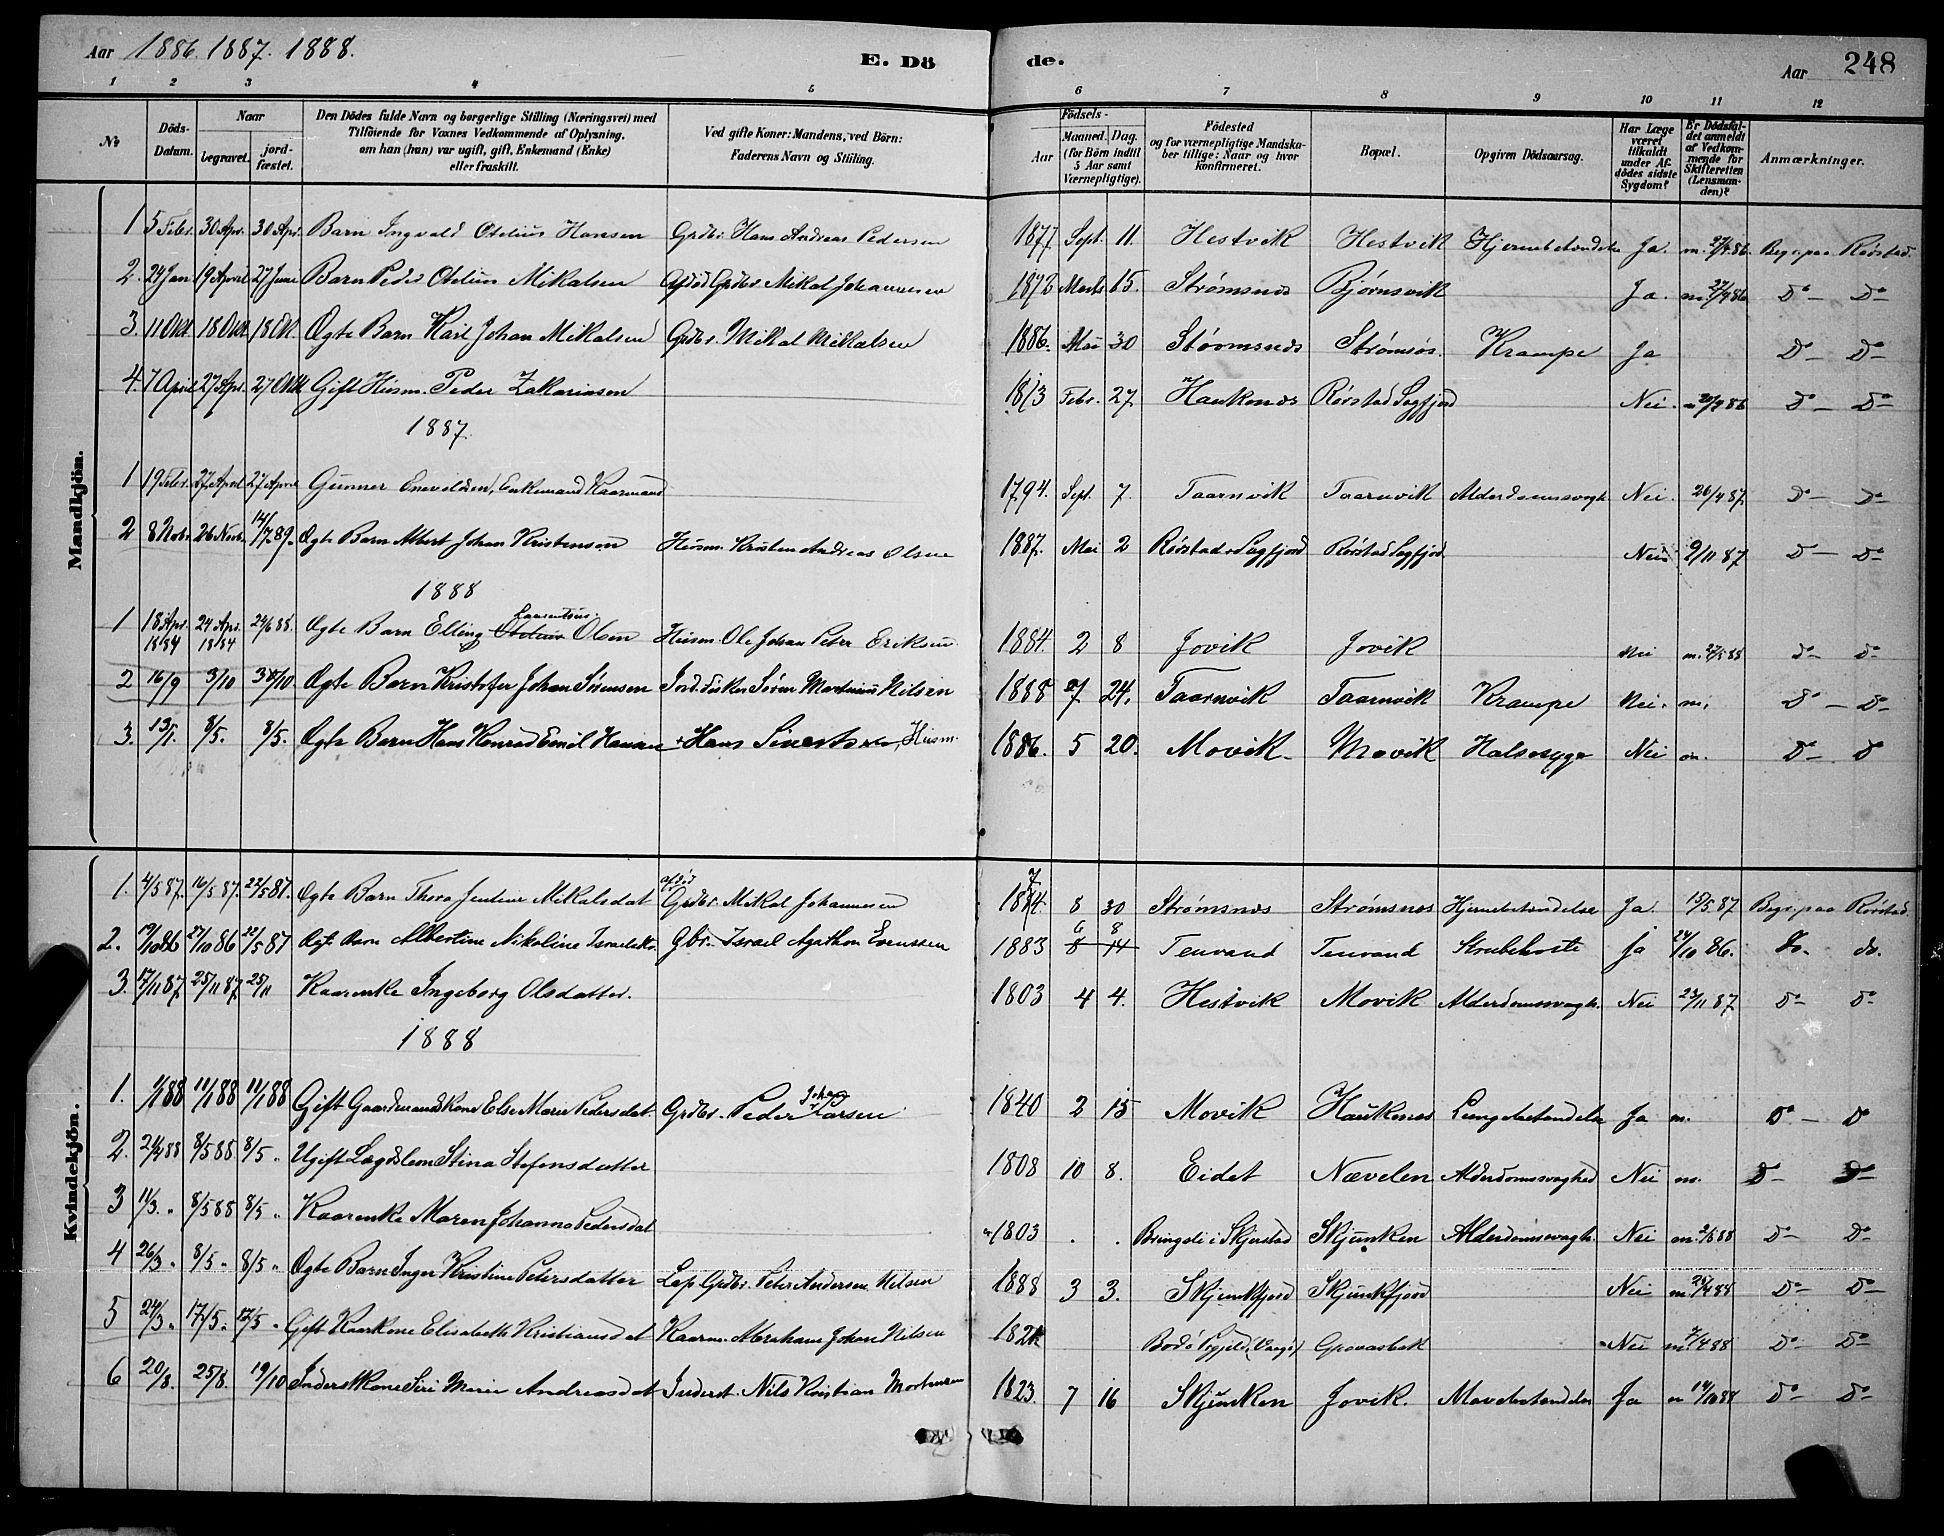 Aar 1886. 1887. 1888. E. Dö de. Aar 248
1 2 3 4 5 6 7 8 9 10 11 12
№ Döds-Datum. Naar begravet. jord-fæstet. Den Dödes fulde Navn og borgerlige Stilling (Næringsvei) med Tilföiende for Voxnes Vedkommende af Oplysning, om han (hun) var ugift, gift, Enkemand (Enke) eller fraskilt. Ved gifte Koner: Mandens, ved Börn: Faderens Navn og Stilling. Födsels- Aar Maaned. Dag. (for Börn indtil 5 Aar samt Værnepligtige). Födested og for værnepligtige Mandska-ber tillige: Naar og hvor Konfirmeret. Bopæl. Opgiven Dödsaarsag. Har Læge været tilkaldt under Af-dödes sidste Sygdom? Er Dödsfal-det anmeldt af Vedkom-mende for Skifteretten (Lensman-den)? Anmærkninger.
Mandkjön.
1 5 Febr. 30 Apr. 30 Apr. Barn Ingvald Otelius Hansen Grdbr. Hans Andreas Pedersen 1877 Sept. 11. Hestvik Hestvik Hjernebetændelse Ja. Begr. paa Rörstad.
2. 24 Jan 19 April 27 Juni Barn Peder Otelius Mikalsen Afdöd Grdbr. Mikal Johannesen 1872 Marts 15. Strømsnes Bjørnsvik Ja. D° — D°
3. 11 Okt 18 Okt 18 Okt. Ægte Barn Karl Johan Mikalsen Grdbr. Mikal Mikkalsen 1886. Mai 30 Strømsnes Strømsøs. Krampe Ja D° — D°
4. 7 April 27 Apr. 27 Okt Gift Husm. Peder Zakariasen 1813 Febr. 27 Haukenes Rørstad Sagfjord Nei D° — D°
1887.
1 19 Febr. 27 April 27 April Gunner Enevoldsen, Enkemand Kaarmand 1794. Sept. 7. Taarnvik Taarnvik Alderdomssvagh. Nei. 26/4 87. D° — D°
2 8 Nob. 26 Novb. 14/7 89. Ægte Barn Albert Johan Kristensen Husm. Kristen Andreas Olsen 1887. Mai 2 Rørstad Sagfjord Rørstad Sagfjord Nei 9/11 87 D° — D°
1888
1 18 Apr. 1884 24 Apr. 1884 24/6 88. Ægte Barn Elling Laurentius Olsen Husm. Ole Johan Peter Eriksen 1884. 2 8 Jovik Jovik Nei D° D°
2 16/9 3/10 Ægte Barn Kristofer Johan Sørensen Søren Martinius Nilsen 1888 7 24. Taarnvik Taarnvik Krampe Nei. m. D° — D°
3. 13/1. 8/5. 8/5. Ægte Barn Hans Konrad Emil Hansen Hans Sivertsen, Husm. 1886. 5 20. Movik Movik Halssyge Nei m. D° D°
Kvindekjön.
1. 4/5 87. 16/5 87. 22/5 87. Ægte Barn Thora Jentine Mikalsdat afdöd Grdbr. Mikal Johannesen 1874. 8 30 Strømsnes Strømsnes Hjernebetændelse Ja. 15/5 87 Begr. paa Rørstad.
2. 19/10 86 27/10 86 22/5 87 Ægt. Barn Albertine Nikoline Israelsdtr. Gbr. Israel Agathon Evensen 1883 6 8 Tenvand Tenvand Strubehoste Ja 24/10 86. do. do.
3. 17/11 87. 25/11 87. 25/11 Kaarenke Ingeborg Olsdatter. 1803 4 4. Hestvik Movik Alderdomssvagh. Nei 23/11 87 D° D°
1888
1. 1/1 88 11/1 88 11/1 88 Gift Gaardmandskone Else Marie Pedersdat. Grdbr. Peder Johan Larsen 1840 2 15 Movik Haukenes Lungebetændelse Ja m. D° — D°
2. 24/4 88 8/5 88 8/5 „ Ugift Lægdslem Stina Stefensdatter 1808 10 8. Eidet Nævelen Alderdomssvaghed Nei m. D° D°
3 11/3. „ 8/5 88 8/5 „ Kaarenke Maren Johanna Pedersdat 1803 . . Bringsli i Skjerstad Skjunken Alderdomssvagh. Nei D° D°
4 26/3 „ 8/5 „ 8/5 „ Ægte Barn Inger Kristine Petersdatter Lap Grdbr. Peter Andersen Nilsen 1888 3 3. Skjunkfjord Skjunkfjord Nei D° D°
5 24/3 „ 17/5 „ 17/5 „ Gift Kaarkone Elisabeth Kristiansdat Kaarm. Abraham Johan Nilsen Nei D° D°
6 20/8. 25/8. 19/10 Inderstkone Siri Marie Andreasdat Inderst. Nils Kristian Mortensen 1823. 7 16 Skjunken Jovik. Mavebetændelse Ja D° D°